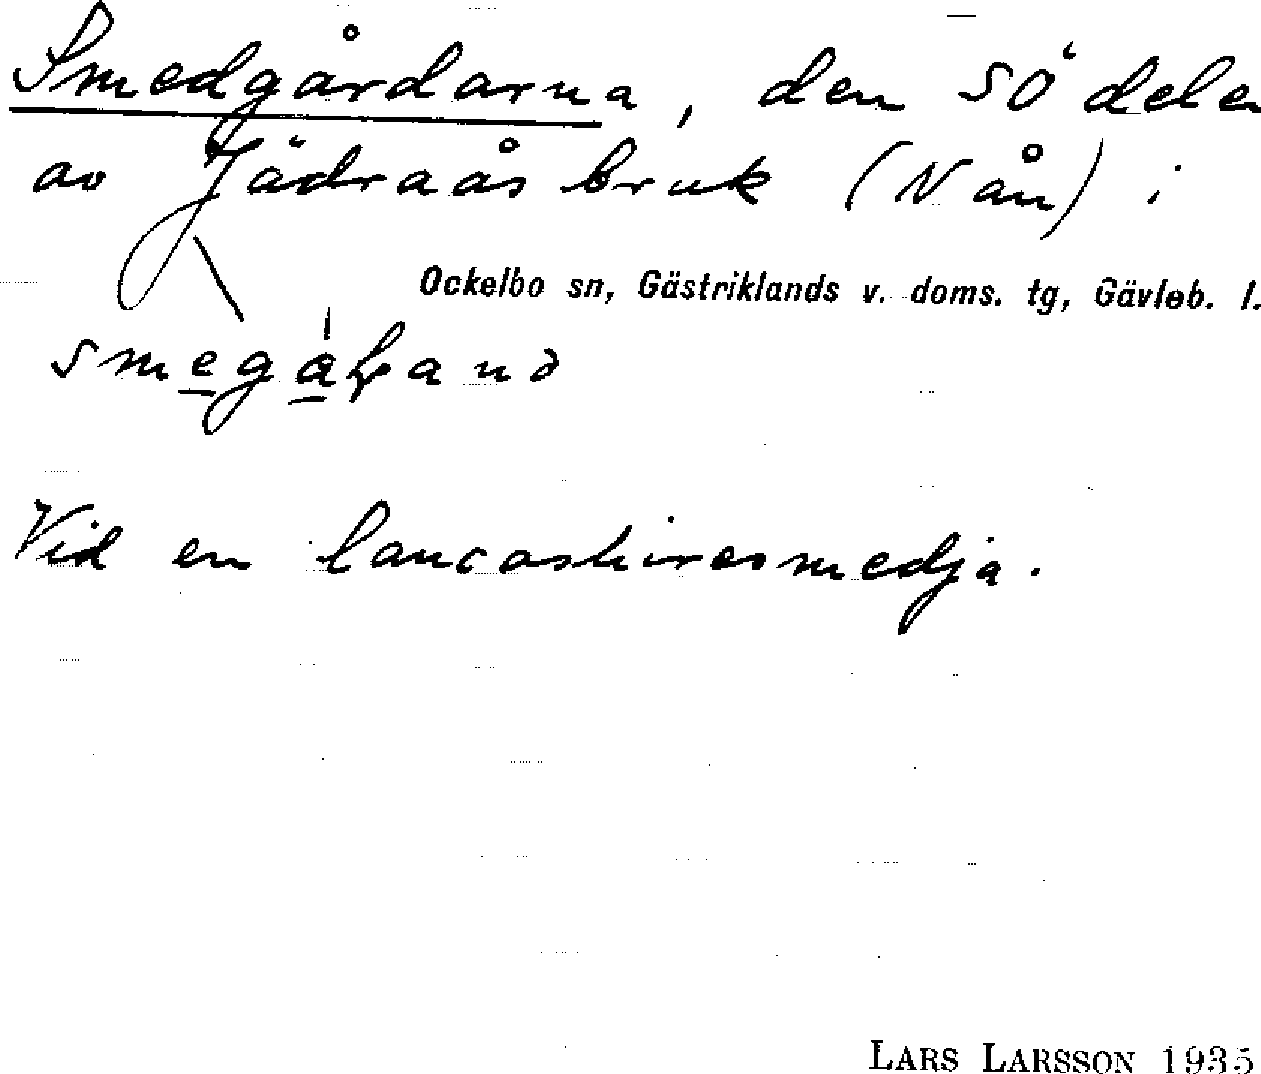 Smedgårdarna, den SÖ delen
av Jädraås bruk (N ån) i
Ockelbo sn, Gästriklands v. doms. tg, Gävleb. l.
Vid en lancashiresmedja.
LARS LARSSON 1935